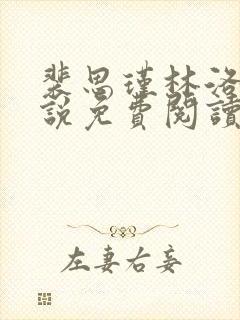 裴思瑾林洛
說免費閱讀
左妻右妾